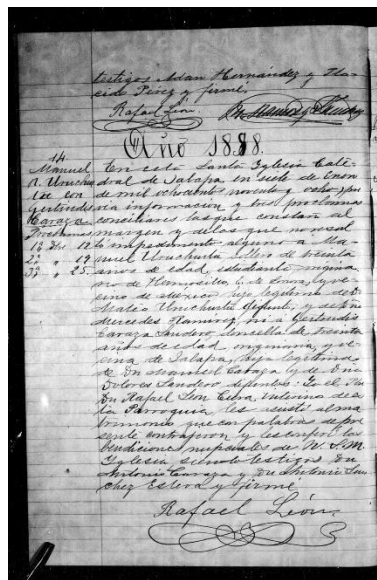 testigos Adan Hernández y Pla-
cido Pérez y firmé.
Rafael León.
Año 1888.
14.
Manuel
R. Uruchur
tu con
Gertrudis
Caraza
Proclamas
1ª Dbre. 12
2ª " 19
3ª " 25.
En esta Santa Yglesia Cate-
dral de Jalapa en siete de Enero
de mil ochocientos noventa y ocho, pre-
via informacion y tres proclamas
conciliares las que constan al
margen y de las que no resul
tó impedimento alguno a Ma-
nuel Uruchurtu soltero de treinta
años de edad, estudiante, origina
rio de Hermosillo, E. de Sonora, y ve-
cino de Mexico hijo legítimo de D.
Mateo Uruchurtu difunto, y de Dña
Mercedes Ramirez, con Gertrudis
Caraza Landero doncella de treinta
años de edad originaria, y ve-
cina de Jalapa, hija legítima
de Dn Manuel Caraza y de Dña
Dolores Landero difuntos: Yo el Pbro
Dn Rafael León Cura interino de es-
ta Parroquia, les asistí al ma-
trimonio que con palabras de pre-
sente contrajeron y recibieron las
bendiciones nupciales de N. S. M.
Yglesia siendo testigos Dn
Antonio Caraza y Dn Antonio San
chez Esteva y firmé
Rafael León.